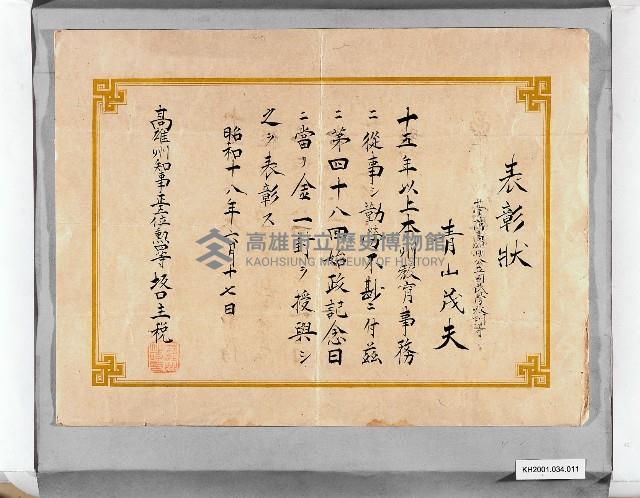 表彰状
青山茂夫
十五年以上本州教育事務
ニ從事シ勤勞不尠ニ付茲
ニ第四十八回始政記念日
ニ當リ金一封ヲ授與シ
之ヲ表彰ス
昭和十八年六月十七日
高雄州知事正五位勲四等坂口主税
高雄市立歷史博物館
KAOHSIUNG MUSEUM OF HISTORY
KH2001.034.011